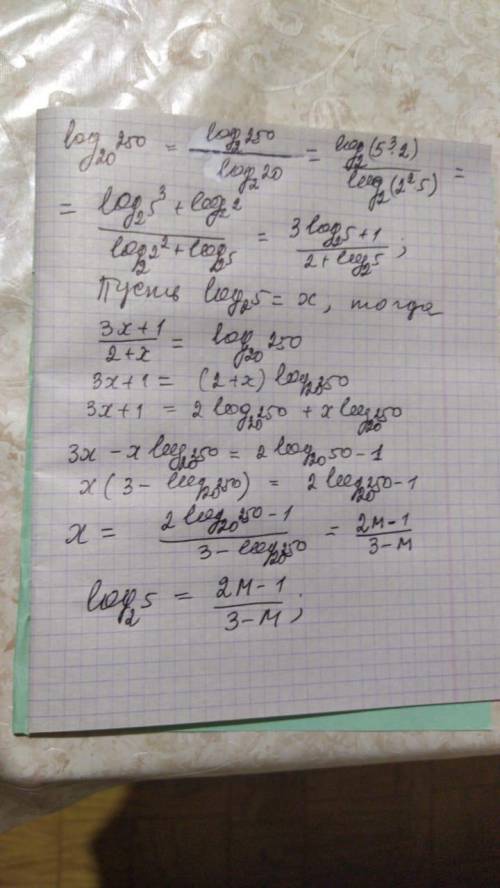 log₂₀250 = log₂250 / log₂20 = log₂(5³·2) / log₂(2²·5) =
= (log₂5³ + log₂2) / (log₂2² + log₂5) = (3log₂5 + 1) / (2 + log₂5) ;
Пусть log₂5 = x, тогда
(3x+1) / (2+x) = log₂₀250
3x+1 = (2+x) log₂₀250
3x+1 = 2log₂₀250 + x log₂₀250
3x - x log₂₀250 = 2log₂₀250 - 1
x(3 - log₂₀250) = 2log₂₀250 - 1
x = (2log₂₀250 - 1) / (3 - log₂₀250) = (2M-1) / (3-M)
log₂5 = (2M-1) / (3-M) ;